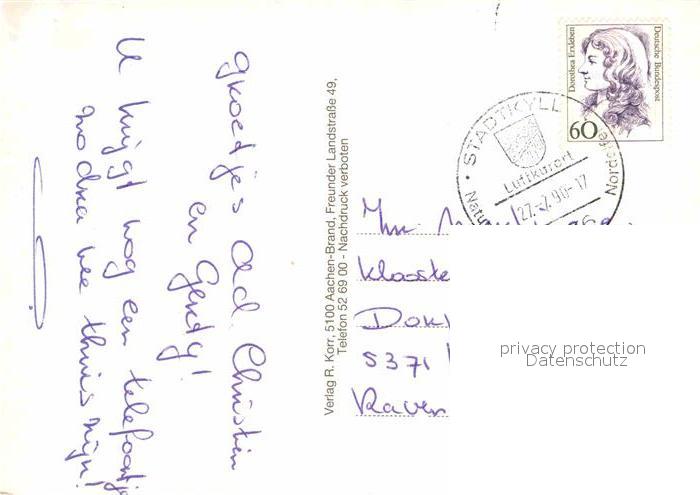 groetjes Ad. Christien
en Gerdy!
U krijgt nog een telefoontje
zodra we thuis zijn!
Verlag R. Korr, 5100 Aachen-Brand, Freunder Landstraße 49,
Telefon 52 69 00 - Nachdruck verboten
Dorothea Erxleben
Deutsche Bundespost
60
STADTKYLL
Luftkurort
27.-7.90-17
Natur
Norde
Klooste
5371
Raven
privacy protection
Datenschutz